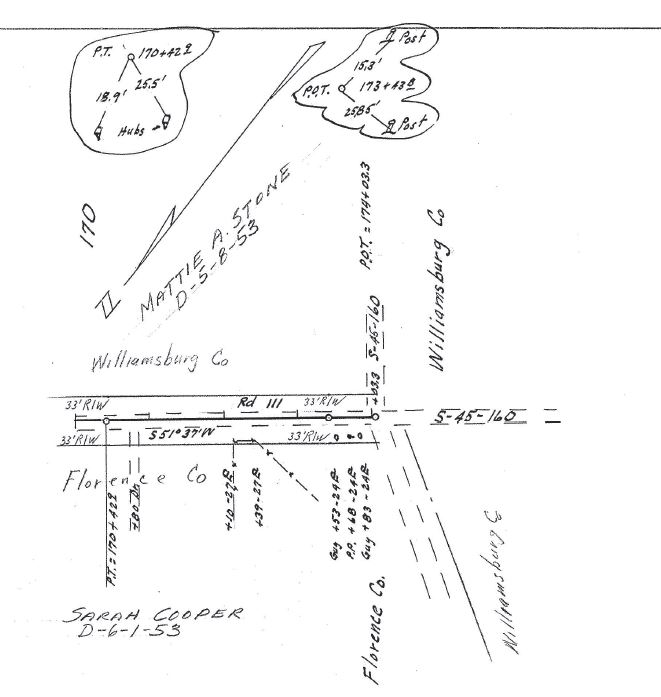 P.T. 170+42 9
18.9' 25.5'
Hubs
Post
15.3'
P.O.T. 173+43 8
25.85'
Post
170
MATTIE A. STONE
D-5-8-53
P.O.T. = 174+03.3
Williamsburg Co
Williamsburg Co
S-45-160
+03.3
33' R/W Rd 111 33' R/W
S-45-160
33' R/W S 51° 37' W 33' R/W
Florence Co
P.T. = 170+42 9
+80 Dr
+10-27
+39-27
Guy +53-24
P.P. +68-24
Guy +83-24
Florence Co.
Williamsburg
SARAH COOPER
D-6-1-53